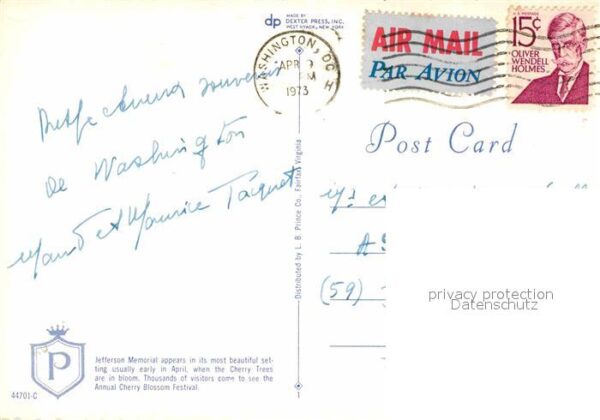 MADE BY
dp DEXTER PRESS, INC.
WEST NYACK, NEW YORK
WASHINGTON, DC
APR
M
1973
AIR MAIL
PAR AVION
15¢
U.S. POSTAGE
OLIVER
WENDELL
HOLMES
Post Card
souvenir
de Washington
et Maurice Tacquet
Distributed by L. B. Prince Co., Fairfax, Virginia
(59)
privacy protection
Datenschutz
P
Jefferson Memorial appears in its most beautiful set-
ting usually early in April, when the Cherry Trees
are in bloom. Thousands of visitors come to see the
Annual Cherry Blossom Festival.
44701-C